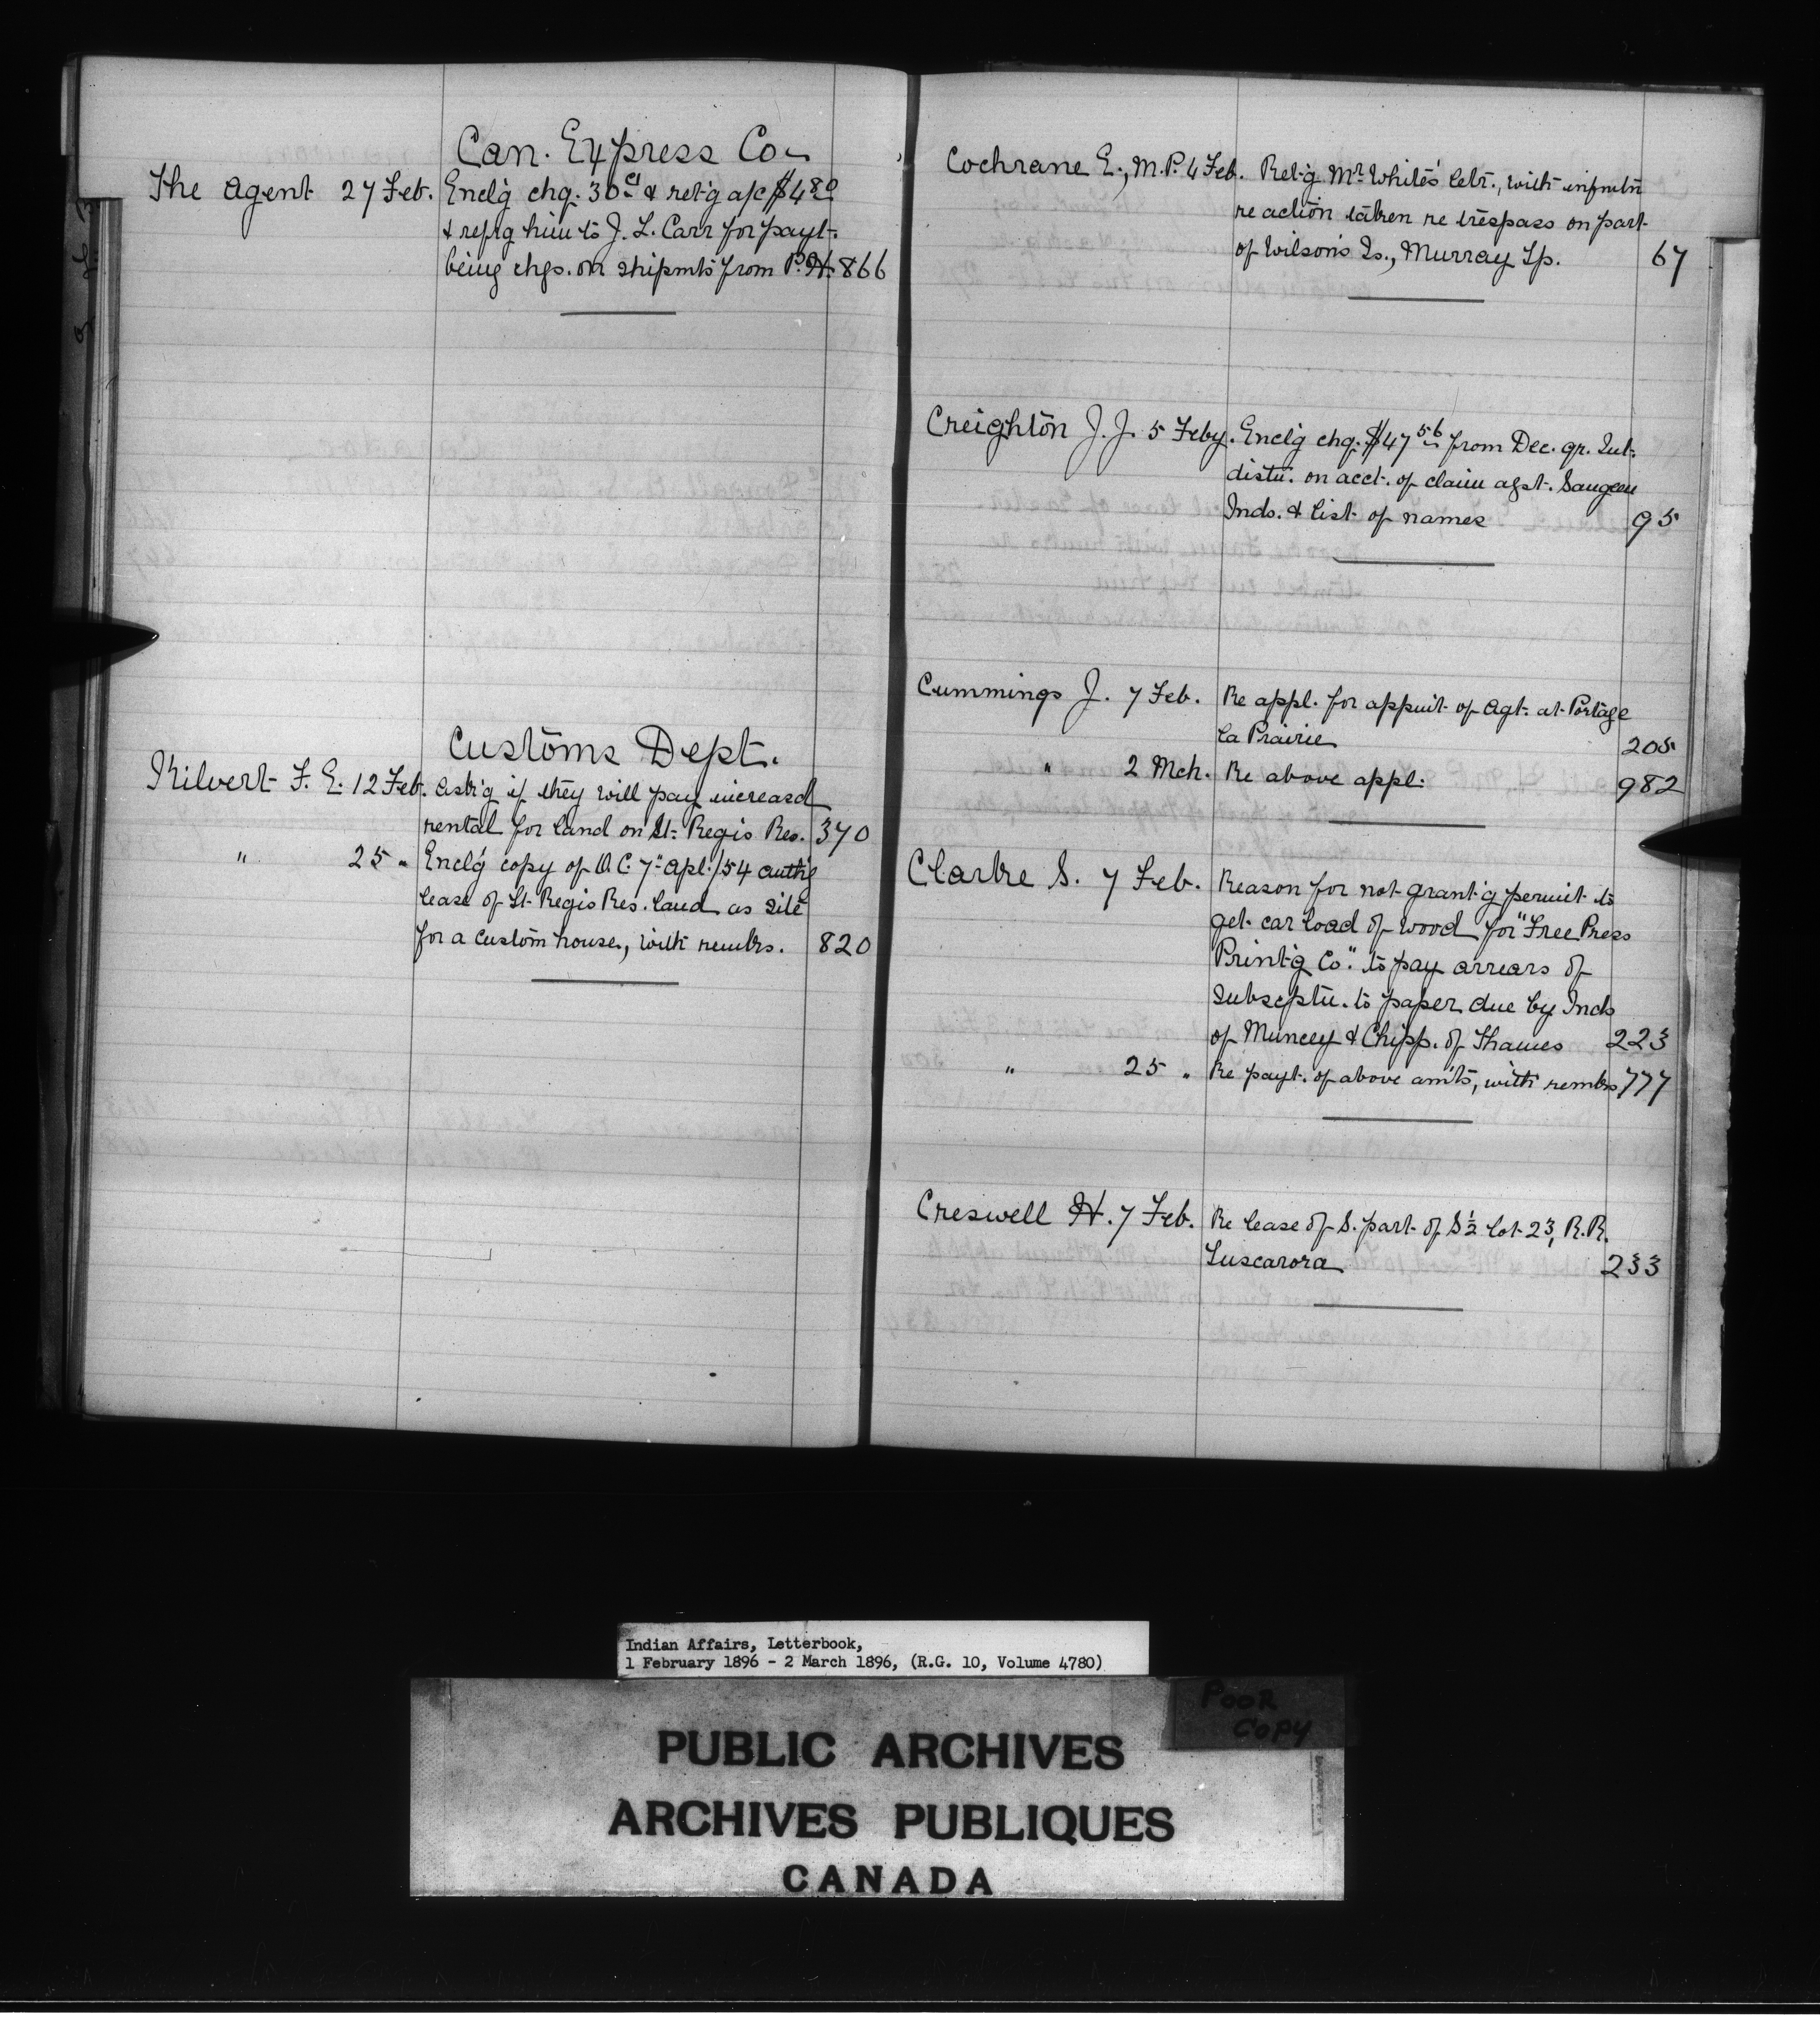 Can. Express Co.
The Agent 27 Feb. Encl'g chq. 30 cts & ret'g a/c $4.80
& refr'g him to J. L. Carr for payt.
being chgs. on shipmts from P. H. 866
Customs Dept.
Kilvert F. E. 12 Feb. Ask'g if they will pay increased
rental for land on St. Regis Res. 370
" 25 " Encl'g copy of O.C. 7" Apl. /54 auth'g
lease of St. Regis Res. land as site
for a custom house, with remks. 820
Cochrane E., M.P. 4 Feb. Ret'g Mr. White's letr., with infmtn
re action taken re trespass on part
of Wilson's Is., Murray Tp. 67
Creighton J. J. 5 Feby. Encl'g chq. $47 56 from Dec. qr. Int.
distn. on acct. of claim agst. Saugeen
Inds. & list of names 95
Cummings J. 7 Feb. Re appl. for appmt of Agt. at Portage
la Prairie 205
" 2 Mch. Re above appl. 982
Clarke S. 7 Feb. Reason for not grant'g permit to
get car load of wood for "Free Press
Print'g Co." to pay arrears of
Subscptn. to paper due by Inds
of Muncey & Chipp. of Thames 223
" 25 " Re payt. of above amts, with remks 777
Creswell H. 7 Feb. Re lease of S. part of S½ lot 23, R.R.
Tuscarora 233
Indian Affairs, Letterbook,
1 February 1896 - 2 March 1896, (R.G. 10, Volume 4780)
POOR
COPY
PUBLIC ARCHIVES
ARCHIVES PUBLIQUES
CANADA